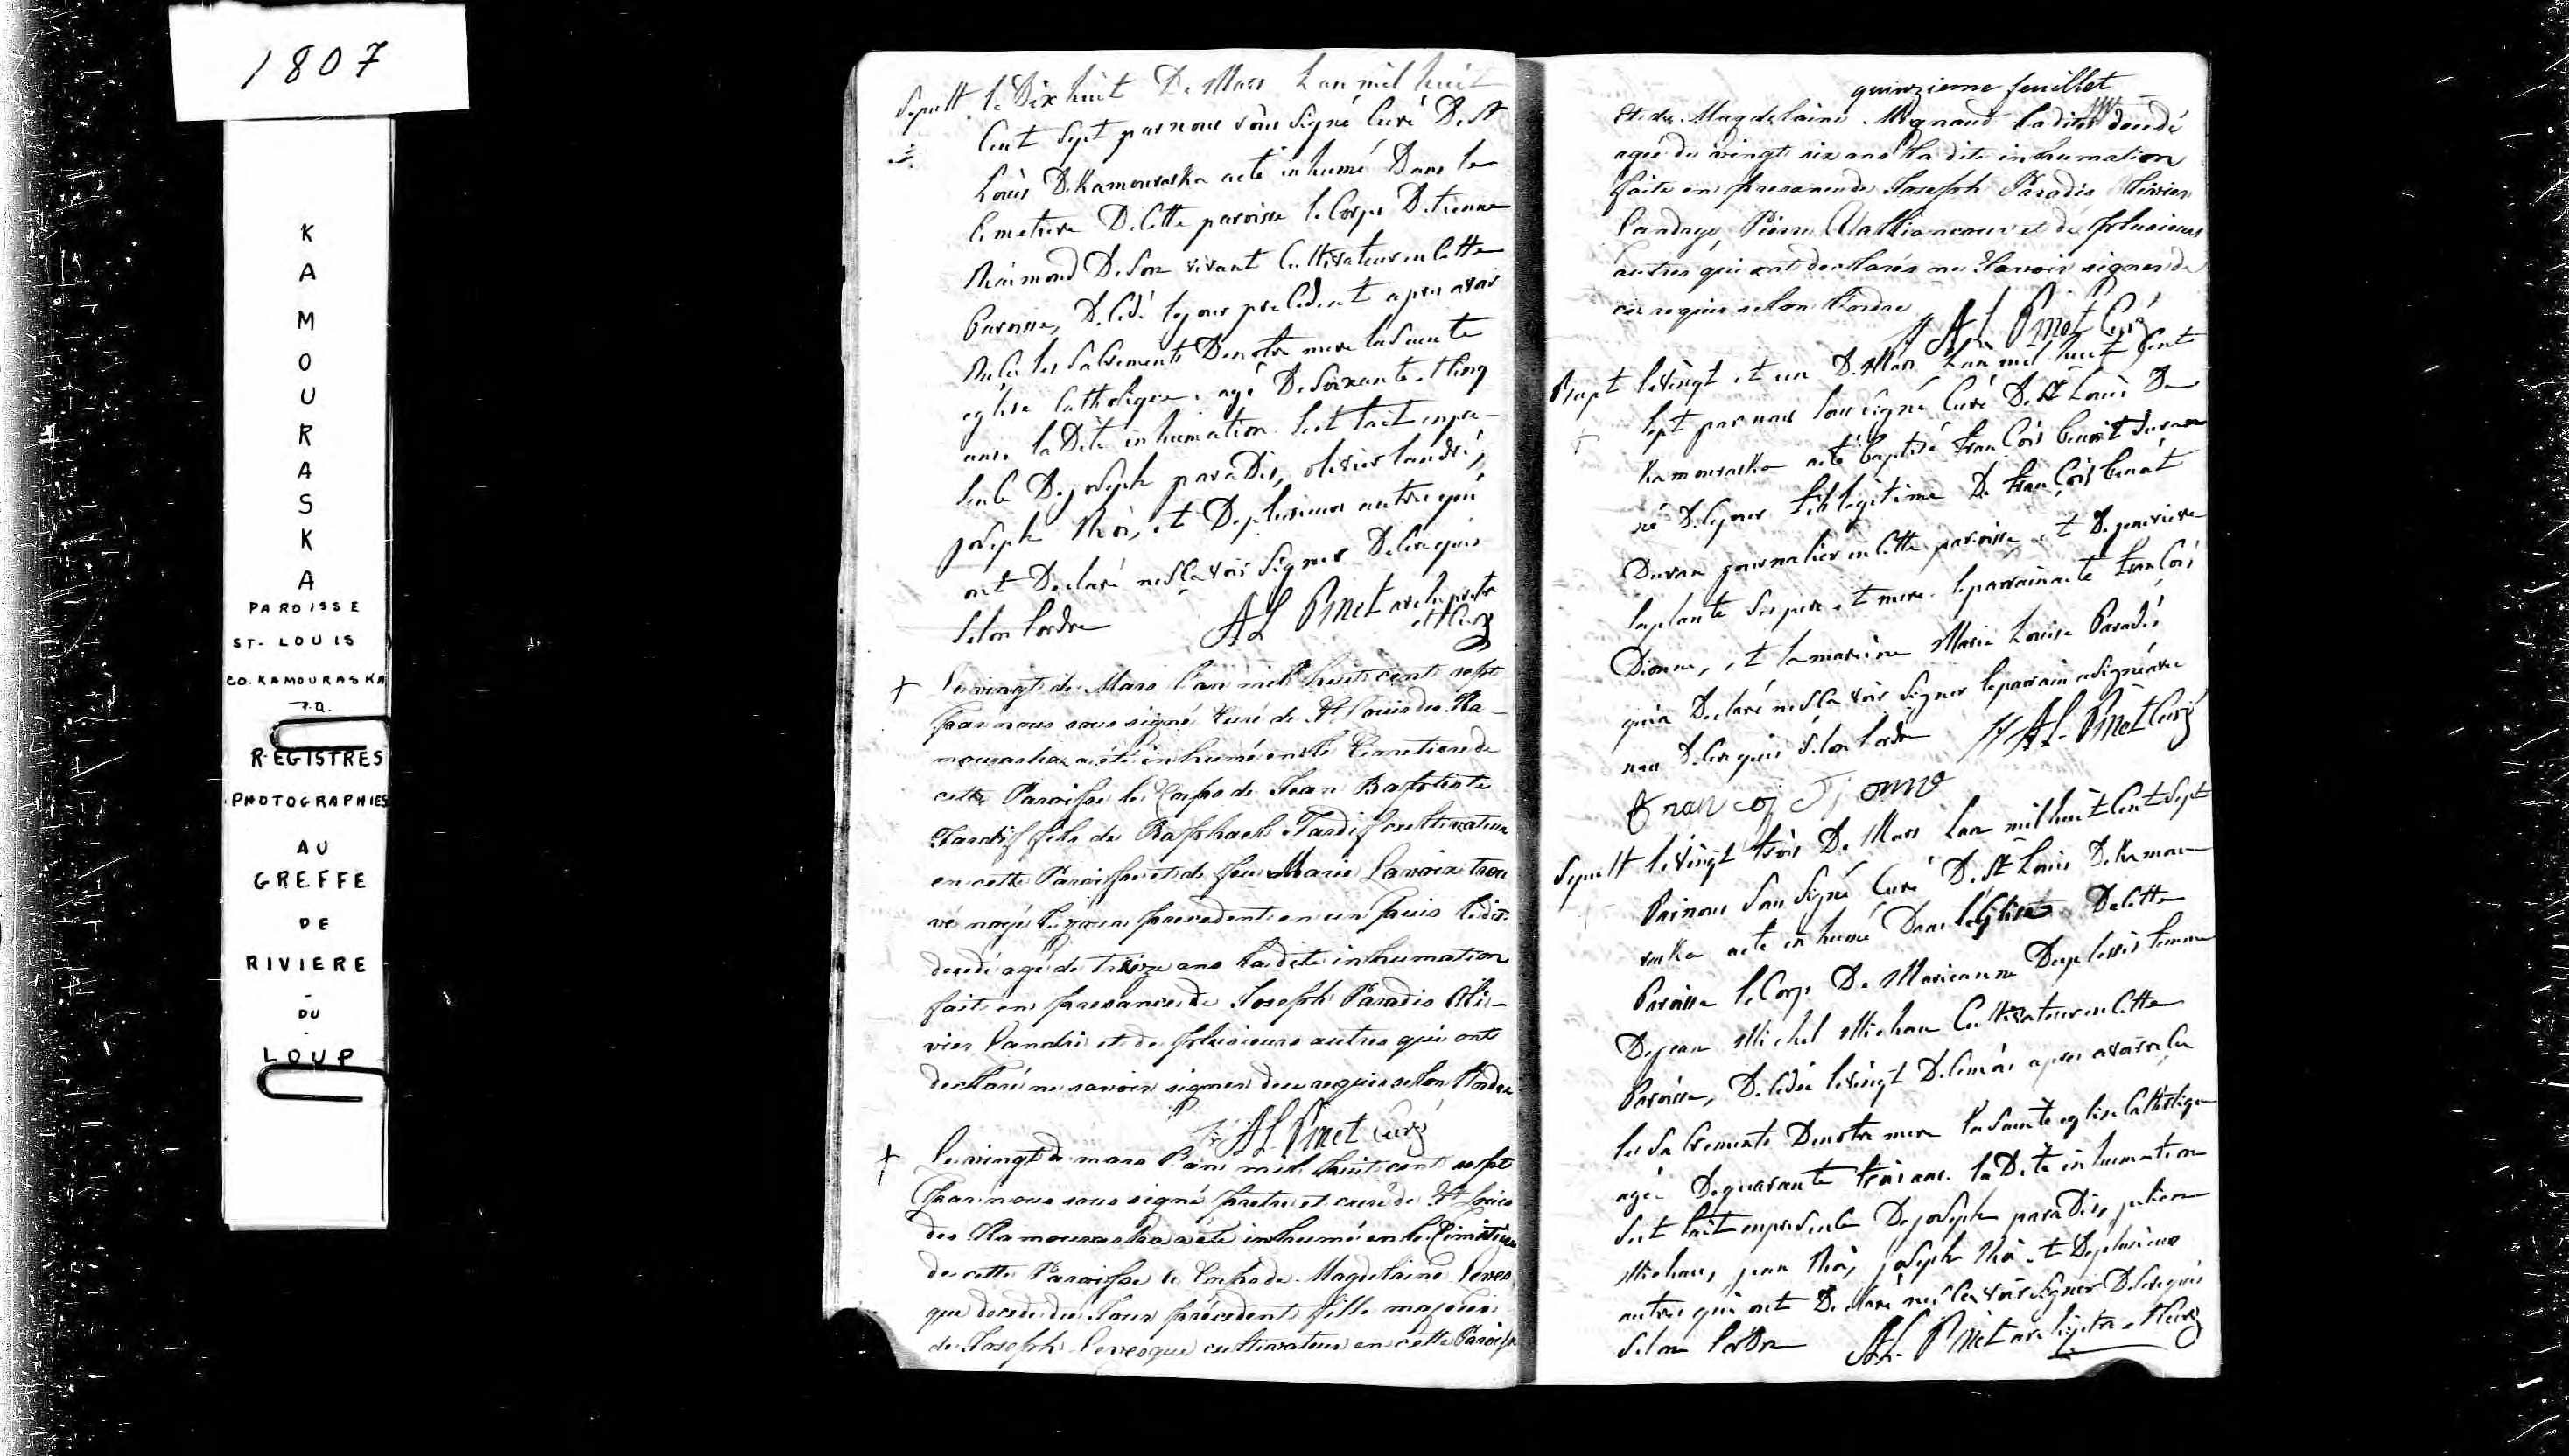 1807
K
A
M
O
U
R
A
S
K
A
PAROISSE
ST-LOUIS
CO. KAMOURASKA
P.Q.
REGISTRES
PHOTOGRAPHIES
AU
GREFFE
DE
RIVIERE
-
DU
-
LOUP
Sepult le Dix huit De Mars L an mil huit
Cent Sept par nous sous Signé Curé De St
Louis De Kamouraska a eté inhumé Dans le
Cimetiere De Cette paroisse le Corps D'etienne
Raimond De Son vivant Cultivateur en Cette
Paroisse, Decedé le jour precedent apres avoir
Recu les Sacrements De notre mere la Sainte
eglise Catholique, agé De Soixante et Cinq
ans. la Dite inhumation s'est fait en pre-
sence De joseph paradis, olivier landri,
joseph Roi, et De plusieurs autres qui
ont Declaré ne Sçavoir Signer De Ce requis
Selon l'ordre AL Pinet archipretre
et Curé
+ Le vingt de Mars l'an mil huit cent sept
par nous sous signé Curé de St Louis de Ka-
mouraska a été inhumé en le Cimetiere de
cette Paroisse le Corps de Jean Baptiste
Tardif fils de Raphael Tardif cultivateur
en cette Paroisse et de feue Marie Lavoix trou
vé noyé le jour precedent en un puis le dit
decedé agé de Treize ans la dite inhumation
fait en presence de Joseph Paradis Oli-
vier Landri et de plusieurs autres qui ont
declaré ne savoir signer de ce requis selon l'ordre
AL Pinet Curé
+ Le vingt de mars l'an mil huit cent sept
par nous sous signé pretre et curé de St Louis
de Kamouraska a été inhumé en le Cimetiere
de cette Paroisse le Corps de Magdelaine Leves
que decedee du Jour précedent fille majeure
de Joseph Levesque cultivateur en cette Paroisse
quinzieme feuillet
Et de Magdelaine Mignaud la dite decedé
agée de vingt six ans la dite inhumation
faite en presence de Joseph Paradis Olivier
Landrye, Pierre Vaillancour et de plusieurs
autres qui ont declarés ne savoir signer de
ce requis selon l'ordre
AL Pinet Curé
Bapt le vingt et un De Mars L an mil huit Cent
Sept par nous sous signé Curé De St Louis De
+ Kamouraska a eté Baptisé François benoit Duran
né De le jour fils legitime De François benoit
Duran journalier en Cette paroisse et De genevieve
laplante Ses pere et mere. le parrain a eté François
Dionne, et la mareine Marie Louise Paradis
qui a Declaré ne Sça voir Signer le parrain a Signé avec
nous De Ce requis Selon l'ordre AL Pinet Curé
Francoi Dionne
Sepult le vingt trois De Mars L an mil huit Cent Sept
Par nous Sous Signé Curé De St Louis De Kamou
raska a eté inhumé Dans l'Eglise De Cette
Paroisse le Corps De Marieanne Duplessis femme
De jean Michel Michau Cultivateur en Cette
Paroisse, Decedée le vingt De Ce mois apres avoir recu
les Sacrements De notre mere la Sainte eglise Catholique
agée De quarante trois ans. la Dite inhumation
s'est fait en presence De joseph paradis, julien
Michau, jean Roi, joseph Roi et De plusieurs
autres qui ont Declaré ne Sça voir Signer De Ce requis
Selon l'ordre AL Pinet archipretre et Curé